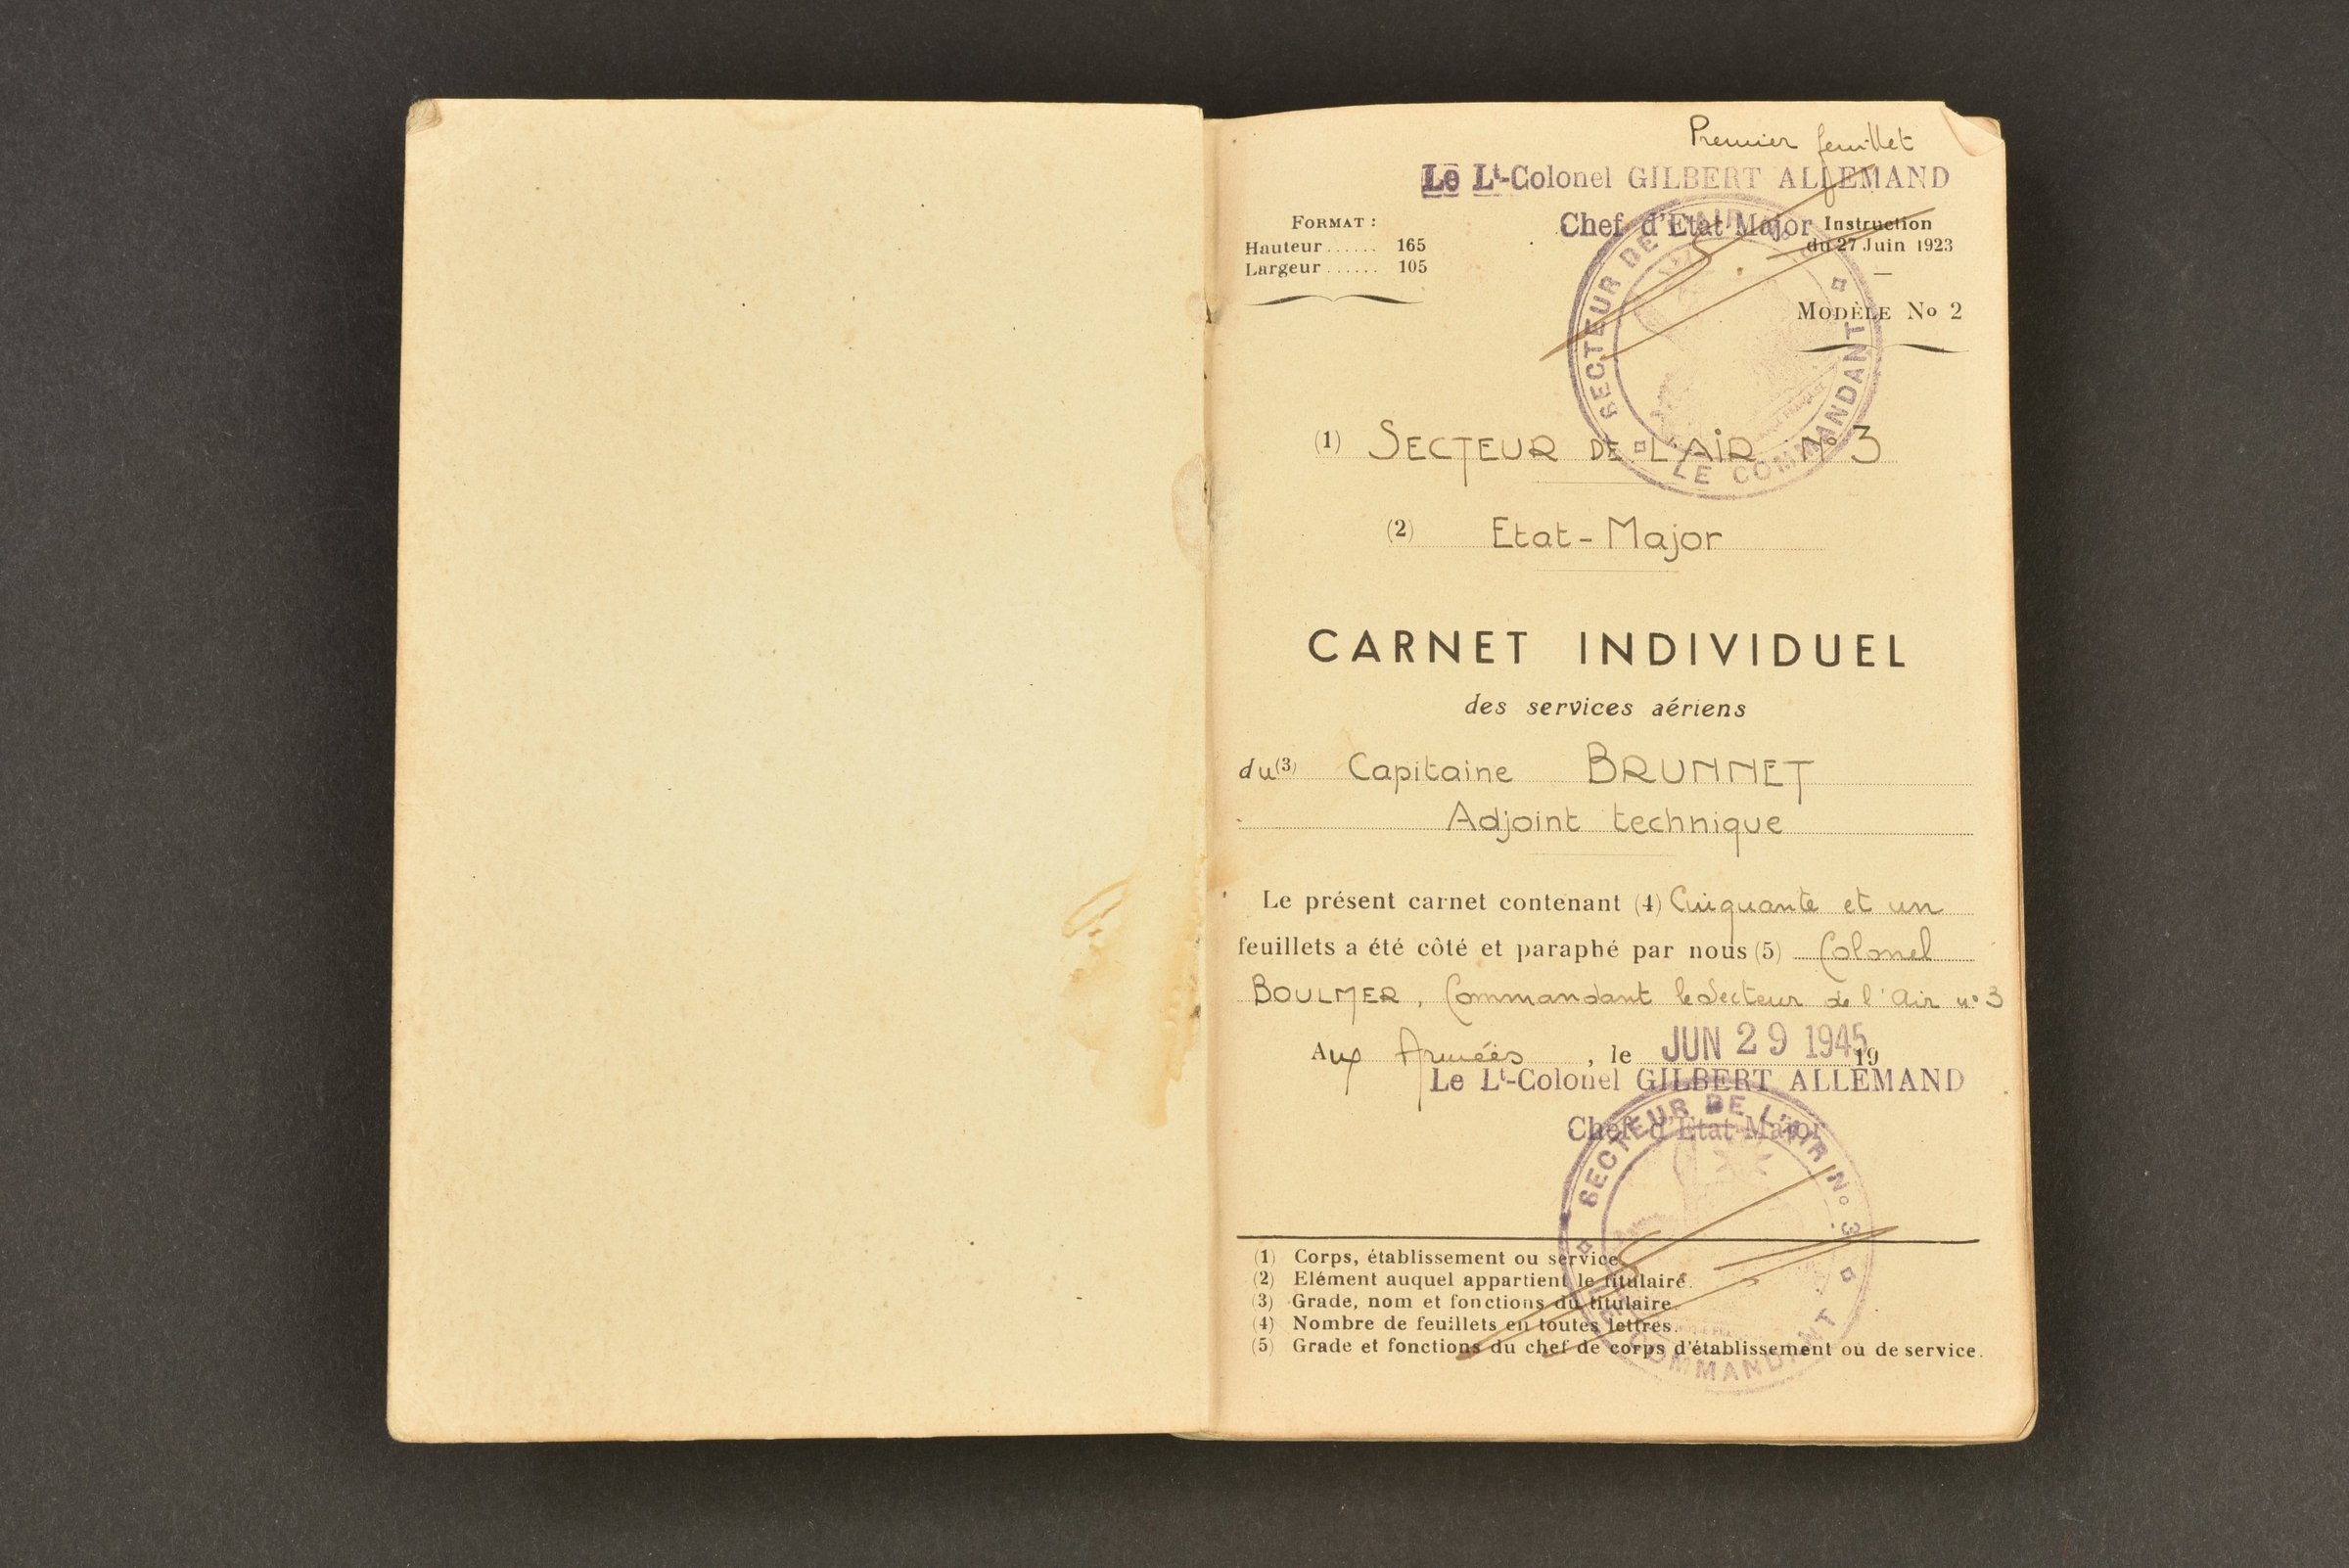 Premier feuillet
Le Lt-Colonel GILBERT ALLEMAND
Chef d'Etat Major
FORMAT :
Hauteur ...... 165
Largeur ...... 105
Instruction
du 27 Juin 1923
MODÈLE No 2
SECTEUR DE L'AIR
LE COMMANDANT
(1) SECTEUR DE L'AIR No 3
(2) Etat-Major
CARNET INDIVIDUEL
des services aériens
du (3) Capitaine BRUNNET
Adjoint technique
Le présent carnet contenant (4) Cinquante et un
feuillets a été côté et paraphé par nous (5) Colonel
BOULMER, Commandant le Secteur de l'Air no 3
Aux Armées, le JUN 29 1945 19
Le Lt-Colonel GILBERT ALLEMAND
Chef d'Etat-Major
SECTEUR DE L'AIR No 3
LE COMMANDANT
(1) Corps, établissement ou service.
(2) Elément auquel appartient le titulaire.
(3) Grade, nom et fonctions du titulaire.
(4) Nombre de feuillets en toutes lettres.
(5) Grade et fonctions du chef de corps d'établissement ou de service.